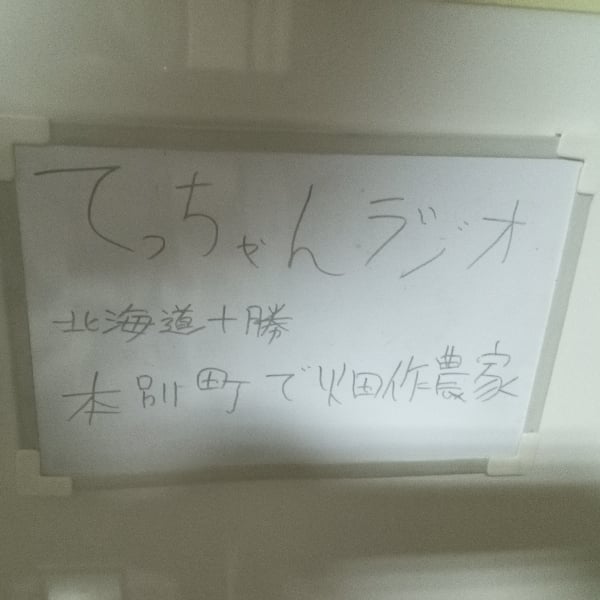 てっちゃんラジオ
北海道十勝
本別町で畑作農家